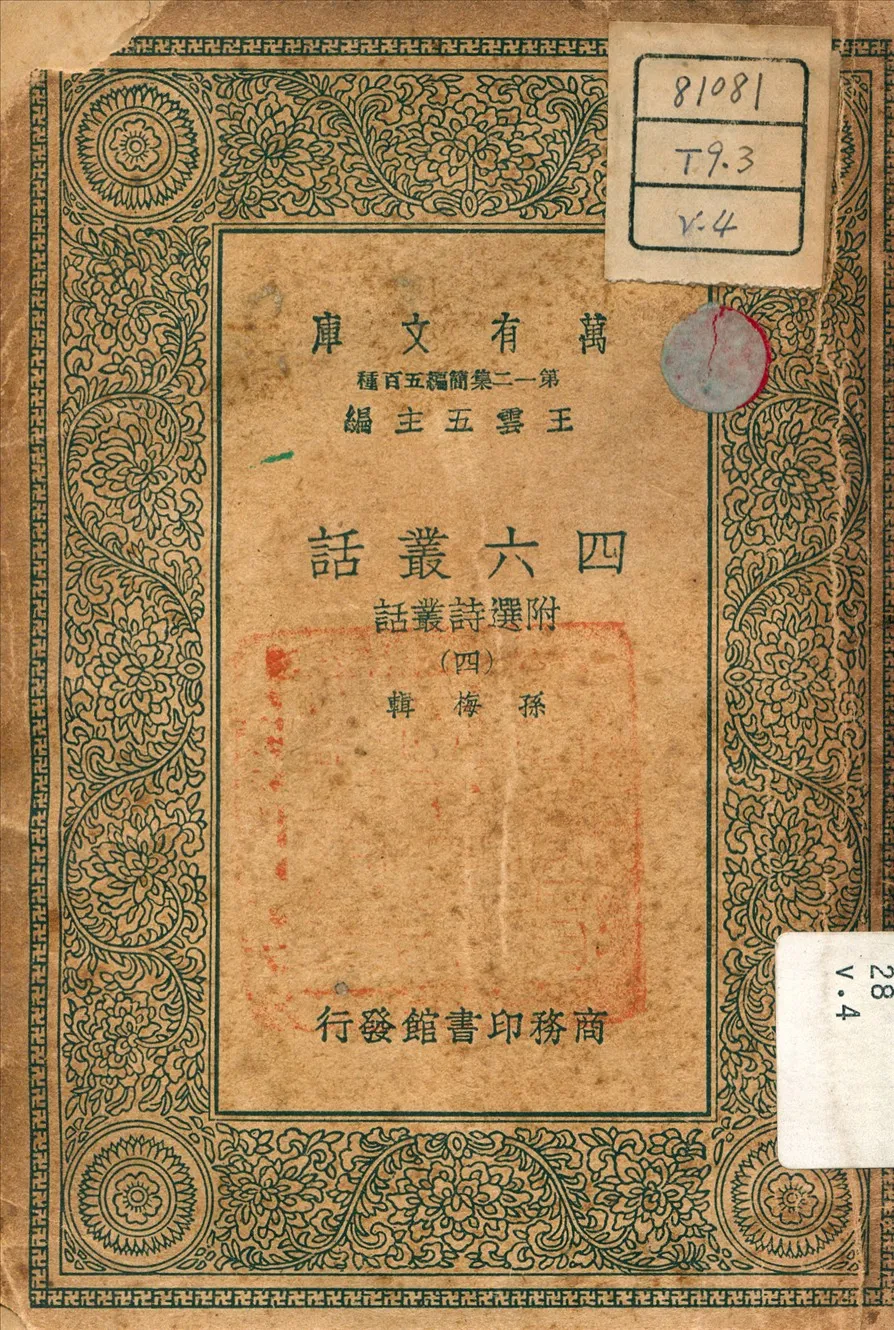 81081
T9.3
V.4
萬有文庫
第一二集簡編五百種
王雲五主編
四六叢話
附選詩叢話
(四)
孫梅輯
商務印書館發行
28
v.4